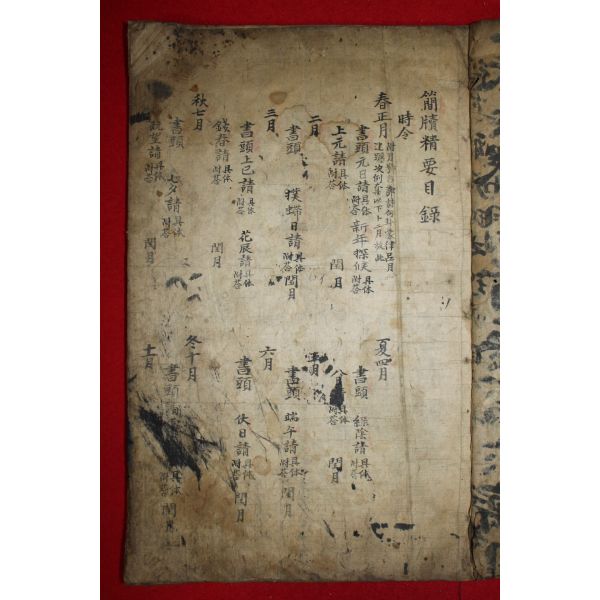 簡牘精要目錄
時令
春正月
書頭 元日請 具体附答 新年探候 具体附答
上元請 具体附答 閏月
二月
書頭 撲蝶日請 具体附答 閏月
三月
書頭 上巳請 具体附答 花辰請 具体附答
餞春請 具体附答 閏月
秋七月
書頭 七夕請 具体附答
請 具体附答 閏月
夏四月
書頭 綠陰請 具体附答
八日請 具体附答 閏月
五月
書頭 端午請 具体附答 閏月
六月
書頭 伏日請 具体附答 閏月
冬十月
書頭 具体附答 閏月
十一月